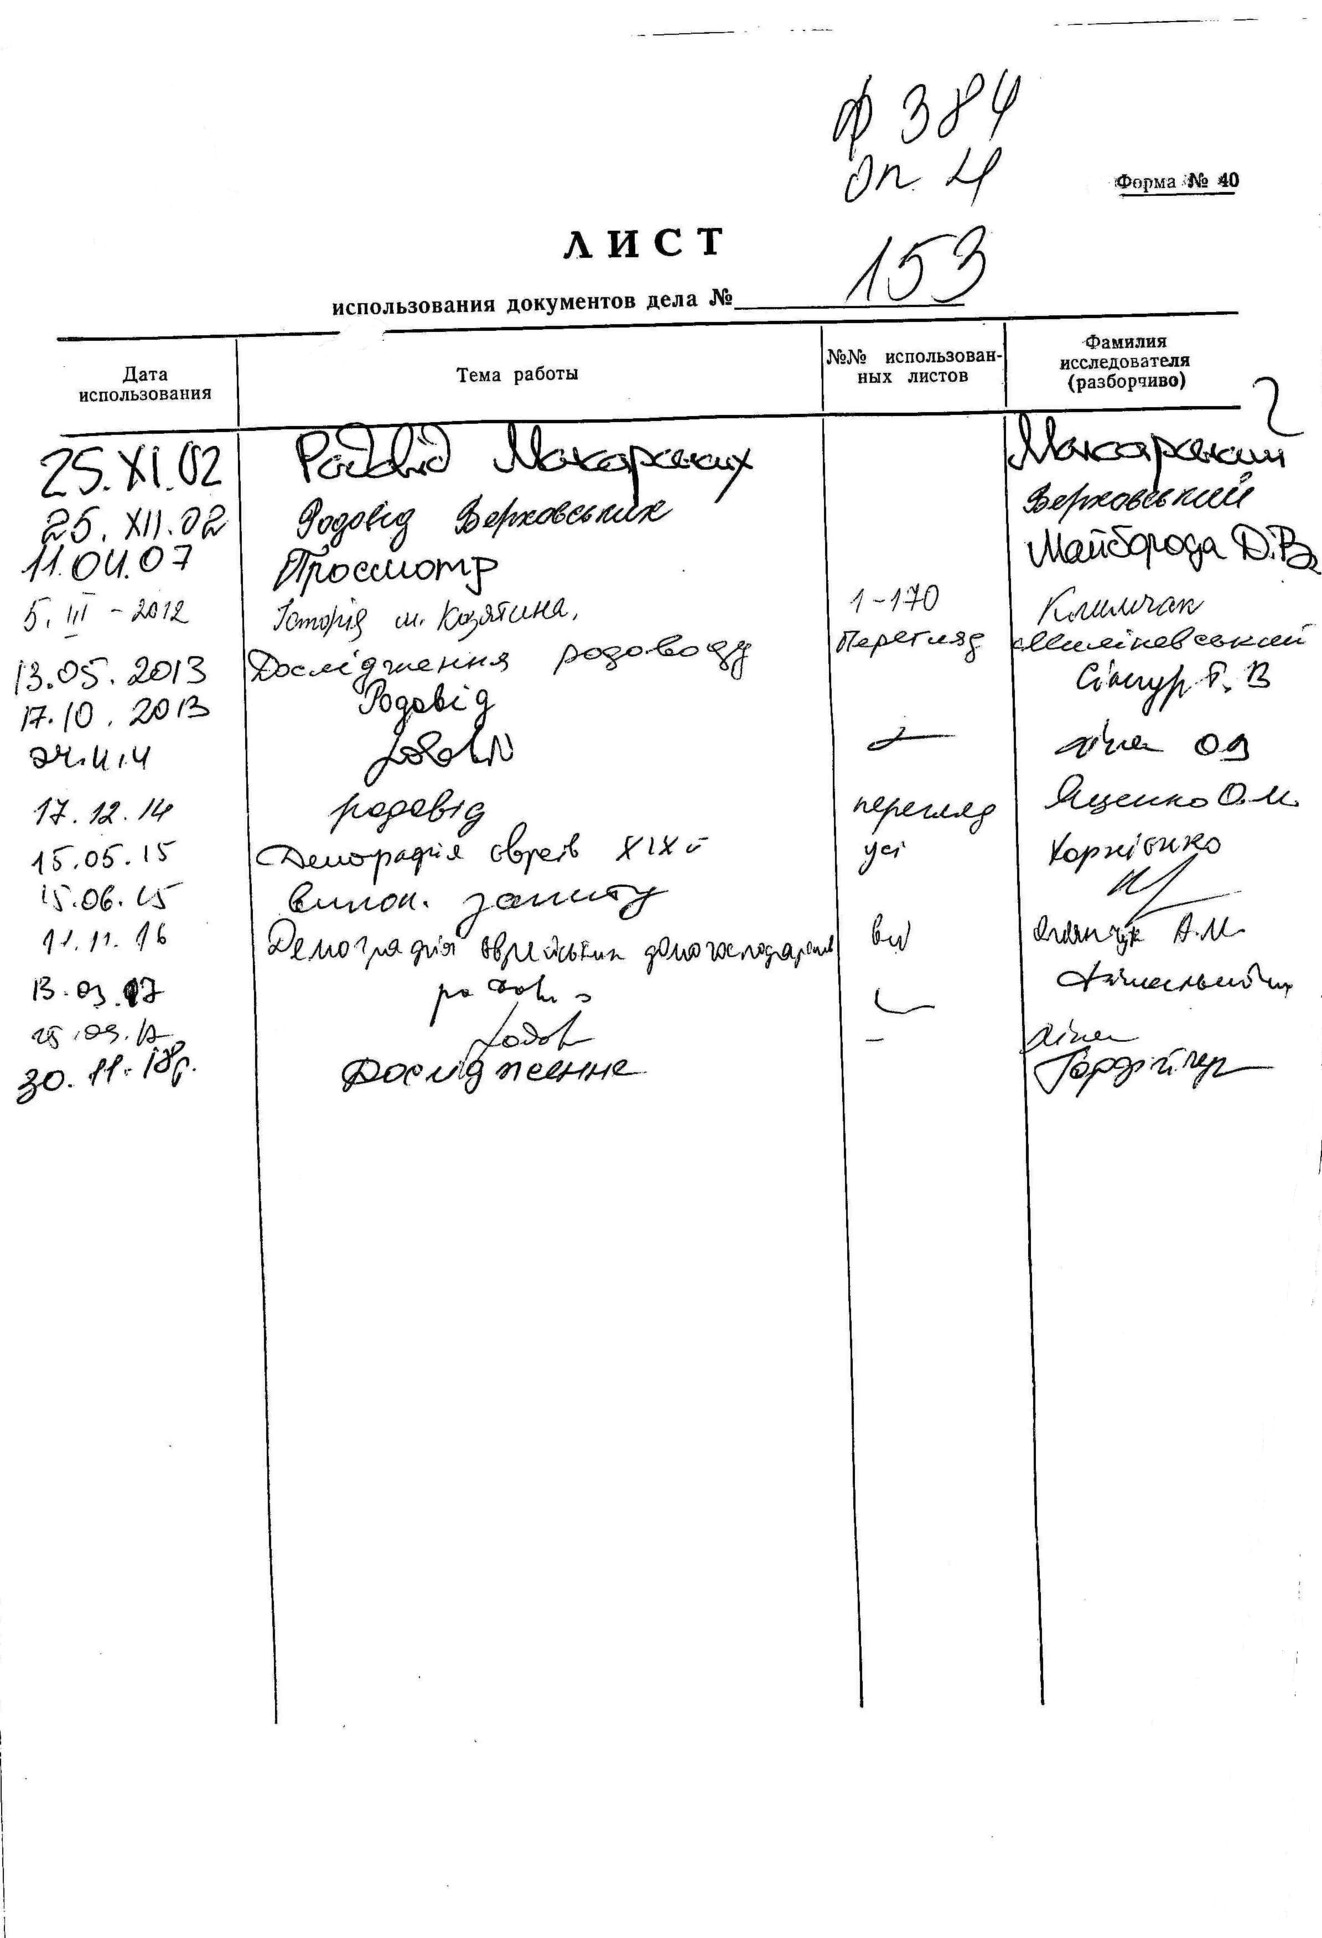 Ф 384
оп. 4
Форма № 40
ЛИСТ
использования документов дела № 153
Дата использования Тема работы №№ использован-ных листов Фамилия исследователя (разборчиво)
25.XI.02 Родовід Макарських Макарський
25.XII.02 Родовід Верховських Верховський
11.04.07 Просмотр Майборода Д.В.
5.III-2012 Історія м. Козятина, 1-170 Климчак
13.05.2013 Дослідження родоводу Перегляд
17.10.2013 Родовід Г.В
17.12.14 родовід перегляд Яценко О.М.
15.05.15 Демографія євреїв XIX усі Корнієнко
15.06.15 викон. запиту
11.11.16 Демографія єврейських домогосподарств А.М.
13.03.17
30.11.18р. Дослідження